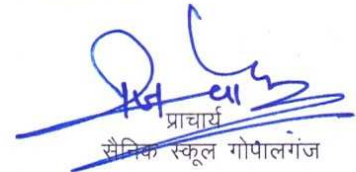 प्राचार्य
सैनिक स्कूल गोपालगंज